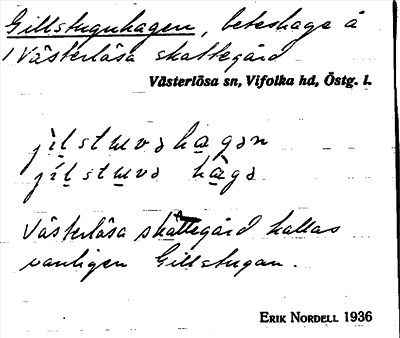 Gillstuguhagen, beteshage å
1 Västerlösa skattegård
Västerlösa sn, Vifolka hd, Östg. l.
jìl̲stu̲vəha̲gən
jíl̲stu̲və hà̲gə
Västerlösa skattegård kallas
vanligen Gillstugan.
ERIK NORDELL 1936